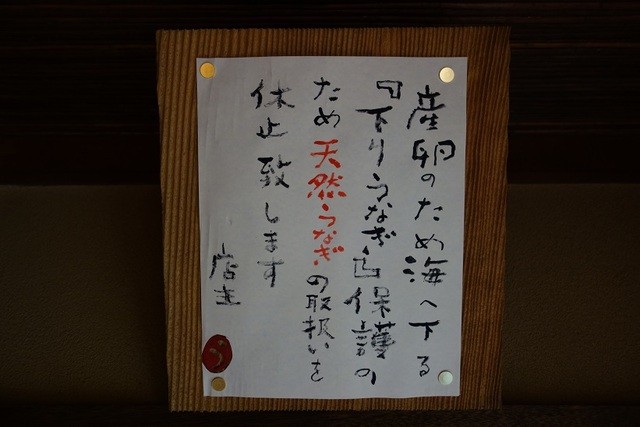 産卵のため海へ下る
「下りうなぎ」保護の
ため天然うなぎの取扱いを
休止致します
店主
う